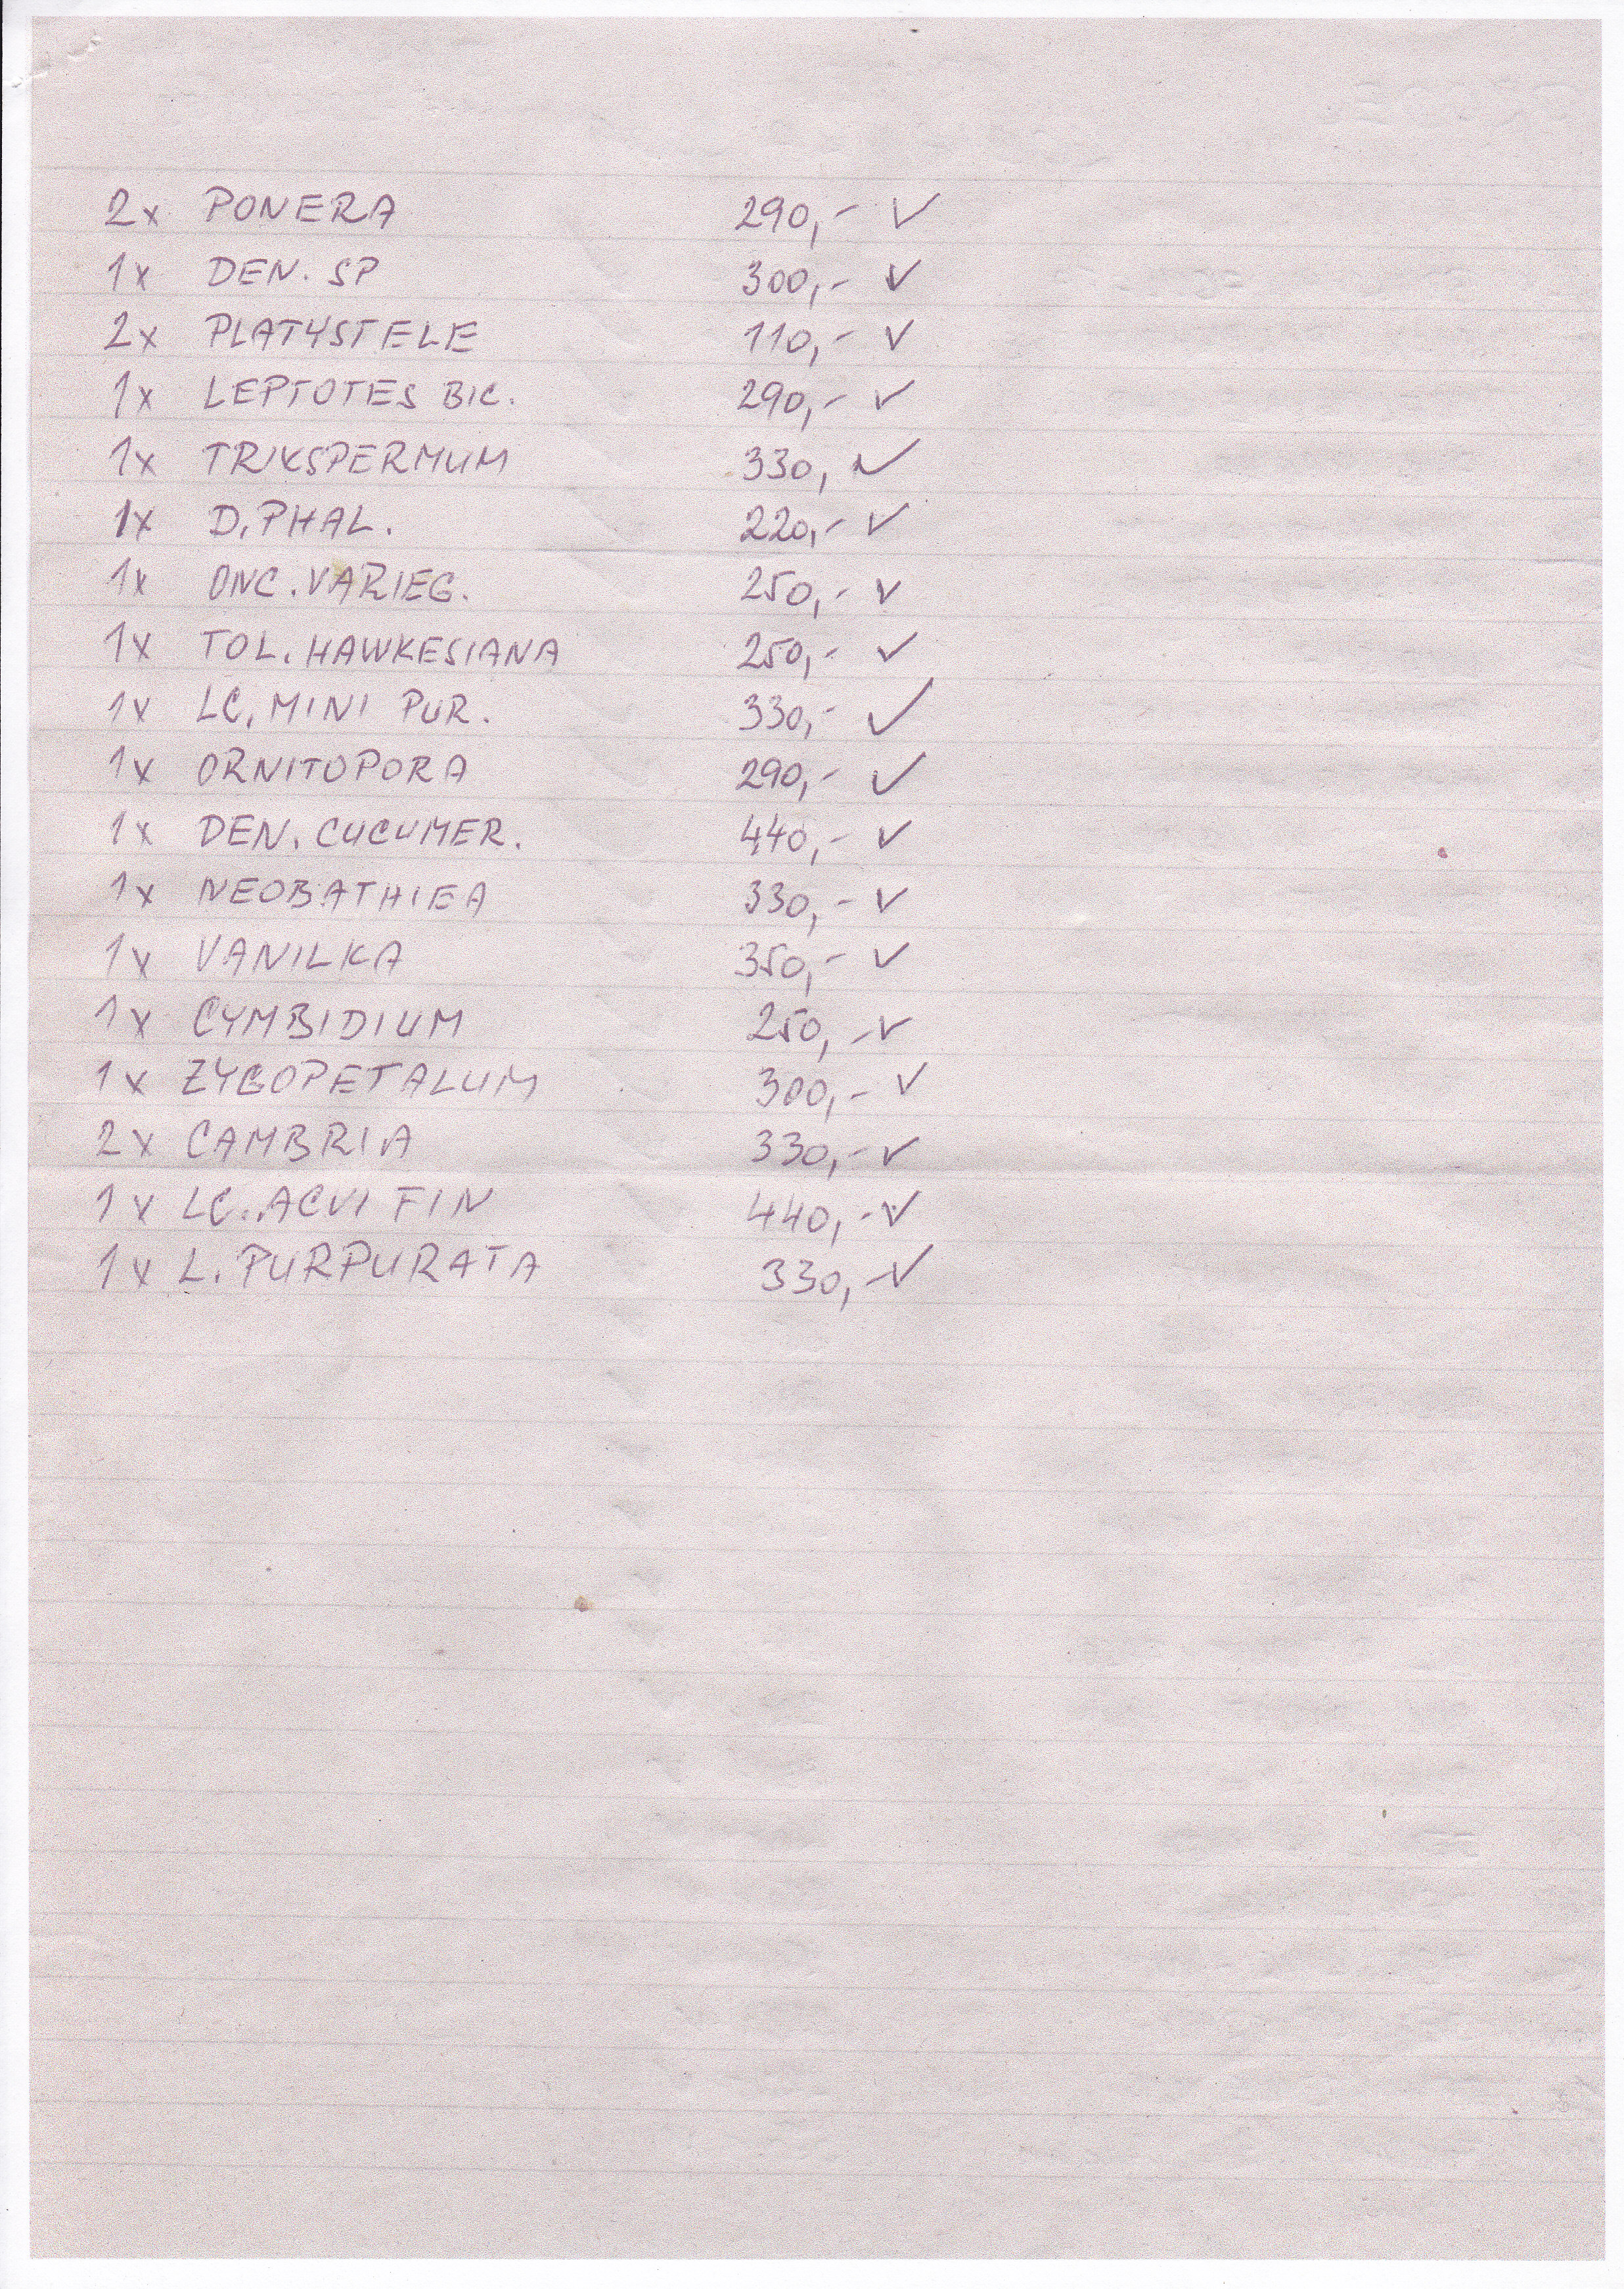 2x PONERA 290,- ✓
1x DEN. SP 300,- ✓
2x PLATYSTELE 110,- ✓
1x LEPTOTES BIC. 290,- ✓
1x TRIXSPERMUM 330,- ✓
1x D. PHAL. 220,- ✓
1x ONC. VARIEG. 250,- ✓
1x TOL. HAWKESIANA 250,- ✓
1x LC. MINI PUR. 330,- ✓
1x ORNITOPORA 290,- ✓
1x DEN. CUCUMER. 440,- ✓
1x NEOBATHIEA 330,- ✓
1x VANILKA 350,- ✓
1x CYMBIDIUM 250,- ✓
1x ZYGOPETALUM 300,- ✓
2x CAMBRIA 330,- ✓
1x LC. ACVI FIN 440,- ✓
1x L. PURPURATA 330,- ✓